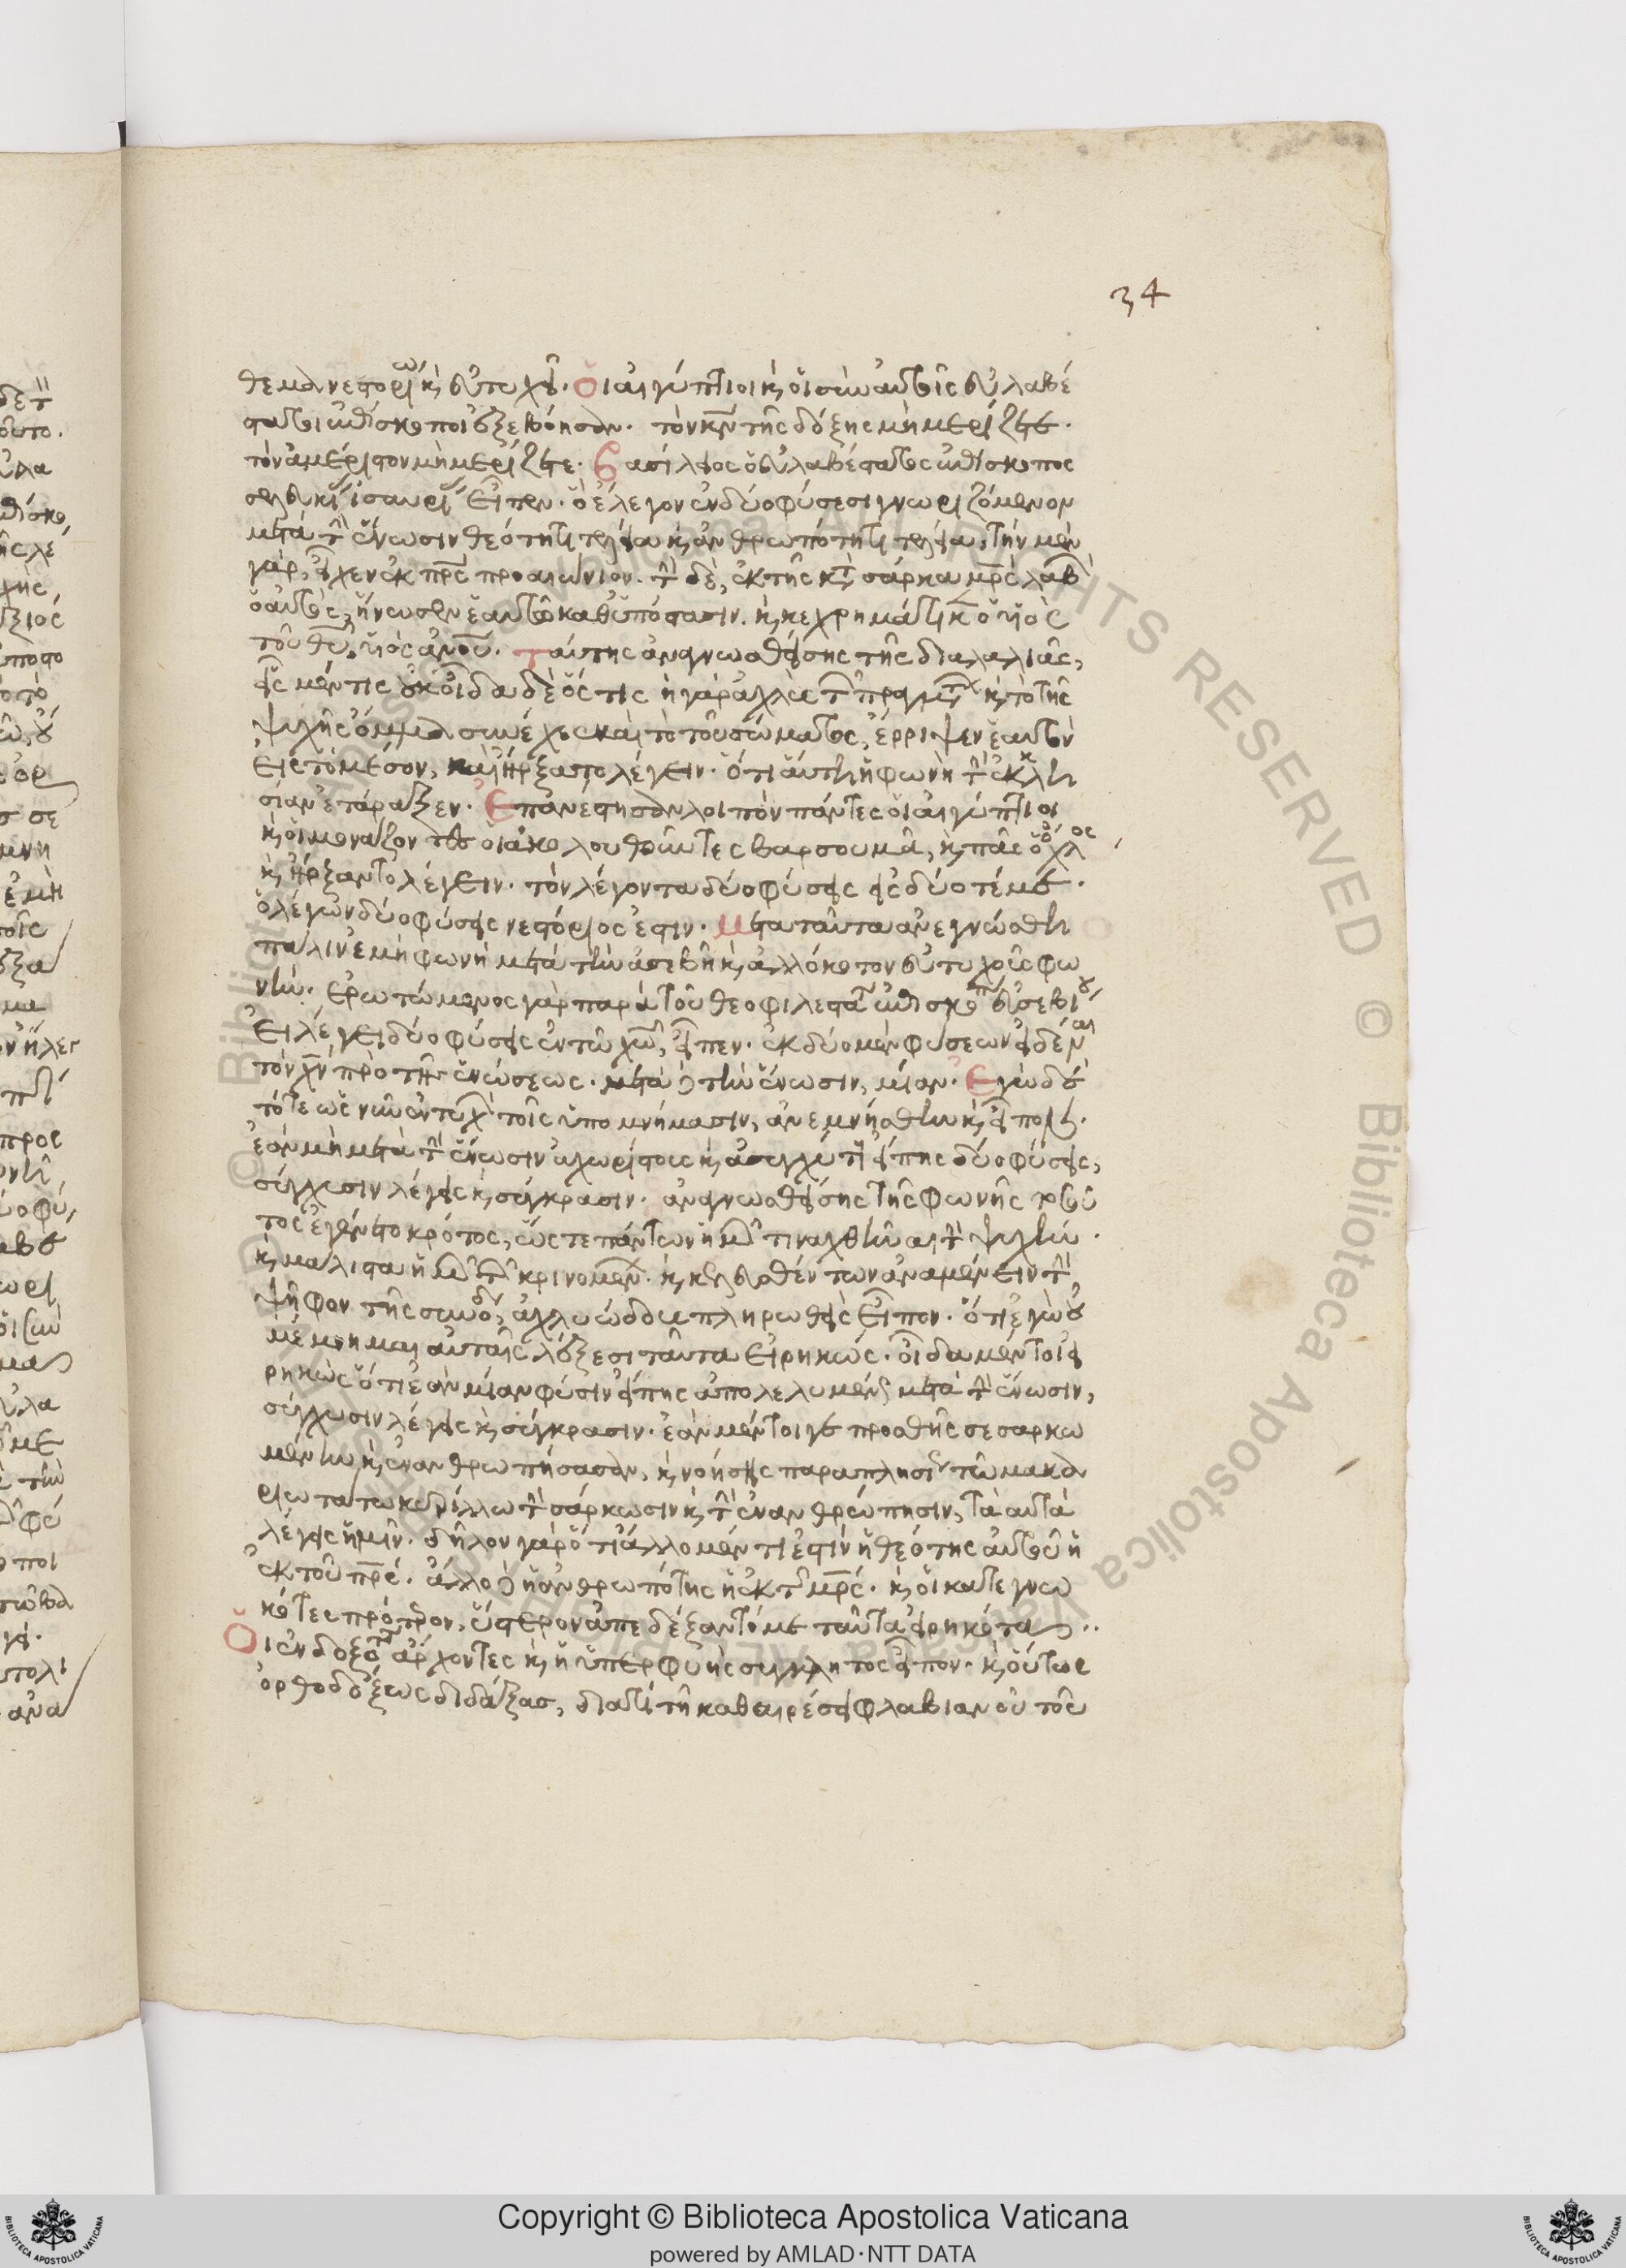 34
θεμα νεστορίω κ εὐτυχεῖ. Οἱ αἰγύπτιοι κ οἱ σὺν αὐτοῖς εὐλαβέ
στατοι ἐπίσκοποι ἐξεβόησαν. τὸν κν τῆς δόξης μὴ μερίζετε.
τὸν ἀμέριστον μὴ μερίζετε. βασίλειος ὁ εὐλαβέστατος ἐπίσκοπος
σελευκ ἰσαυρ εἶπεν. ὃ ἔλεγον ἐν δύο φύσεσι γνωριζόμενον
μετὰ τὴν ἕνωσιν θεότητι τελείαν κ ἀνθρωπότητι τελείαν, τὴν μὲν
γὰρ, εἶχεν ἐκ πρς προαιώνιον. τὴν δὲ, ἐκ τῆς κτ σάρκα μρς λαβὼν
ὁ αὐτὸς, ἥνωσεν ἑαυτῶ καθ ὑπόστασιν. κ κεχρημάτικεν ὁ υἱὸς
τοῦ θυ, υἱὸς ἀνου. ταύτης ἀναγνωσθείσης τῆς διαλαλιᾶς,
εἷς μέν τις οὐκ οἶδα δὲ ὅς τις ἡ γὰρ ἀχλὺς τῶν πραγμάτων κ τὸ τῆς
ψυχῆς ὄμμα συνέχεε καὶ τὸ τοῦ σώματος, ἔρριψεν ἑαυτὸν
εἰς τὸ μέσον, καὶ ἤρξατο λέγειν. ὅτι αὕτη ἡ φωνὴ τὴν ἐκκλη
σίαν ἐτάραξεν. Ἐπανέστησαν λοιπὸν πάντες οἱ αἰγύπτιοι
κ οἱ μονάζοντες οἱ ἀκολουθοῦντες βαρσουμᾶ, κ πᾶς ὁ ὄχλος,
κ ἤρξαντο λέγειν. τὸν λέγοντα δύο φύσεις εἰς δύο τέμε.
ὁ λέγων δύο φύσεις νεστόριος ἐστιν. μετα ταῦτα ἀνεγνώσθη
πάλιν ἐμὴ φωνὴ μετὰ τὴν ἀσεβῆ κ ἀλλόκοτον εὐτυχοῦς φω
νήν. ἐρωτώμενος γὰρ παρὰ τοῦ θεοφιλεστάτου ἐπισκόπου εὐσεβίου,
εἰ λέγει δύο φύσεις ἐν τῶ χω, εἶπεν. ἐκ δύο μὲν φύσεων εἰδέναι
τὸν χν πρὸ τῆς ἑνώσεως. μετὰ δὲ τὴν ἕνωσιν, μίαν. Ἐγὼ δὲ
τότε ὡς νῦν ἐντυχὼν τοῖς ὑπομνήμασιν, ἀνεμνήσθην κ εἶπον.
ἐὰν μὴ μετὰ τὴν ἕνωσιν ἀχωρίστους κ ἀσυγχύτους εἴπης δύο φύσεις,
σύγχυσιν λέγεις κ σύγκρασιν. ἀναγνωσθείσης τῆς φωνῆς τοσοῦ
τος ἐγένετο κρότος, ὥς τε πάντων ἡμῶν τιναχθῆναι τὴν ψυχήν.
κ μάλιστα ἡμῶν τῶν κρινομένων. κ κελευσθέντων ἀναμένειν τὴν
ψῆφον τῆς συνόδου, ἀχλυώδους πληρωθεὶς εἶπον. ὅτι ἐγὼ οὐ
μέμνημαι αὐταῖς λέξεσι ταῦτα εἰρηκώς. οἶδα μέν τοι εἰ
ρηκὼς ὅτι ἐὰν μίαν φύσιν εἴπης ἀπολελυμένως μετὰ τὴν ἕνωσιν,
σύγχυσιν λέγεις κ σύγκρασιν. ἐὰν μέντοι γε προσθῆς σεσαρκω
μένην κ ἐνανθρωπήσασαν, κ νοήσης παραπλησίως τῶ μακα
ριωτάτω κυρίλλω τὴν σάρκωσιν κ τὴν ἐνανθρώπησιν, τὰ αὐτὰ
λέγεις ἡμῖν. δῆλον γὰρ ὅτι ἄλλο μέν τι ἐστὶν ἡ θεότης αὐτοῦ ἡ
ἐκ τοῦ πρς. ἄλλο δὲ ἡ ἀνθρωπότης ἡ ἐκ τῆς μρς. κ οἱ κατεγνω
κότες πρότερον, ὕστερον ἀπεδέξαντό με ταῦτα εἰρηκότα..
Οἱ ἐνδοξότατοι ἄρχοντες κ ἡ ὑπερφυὴς σύγκλητος εἶπον. κ οὕτως
ὀρθοδόξως διδάξας, διατί τῆ καθαιρέσει φλαβιανοῦ τοῦ
Copyright © Biblioteca Apostolica Vaticana
powered by AMLAD·NTT DATA